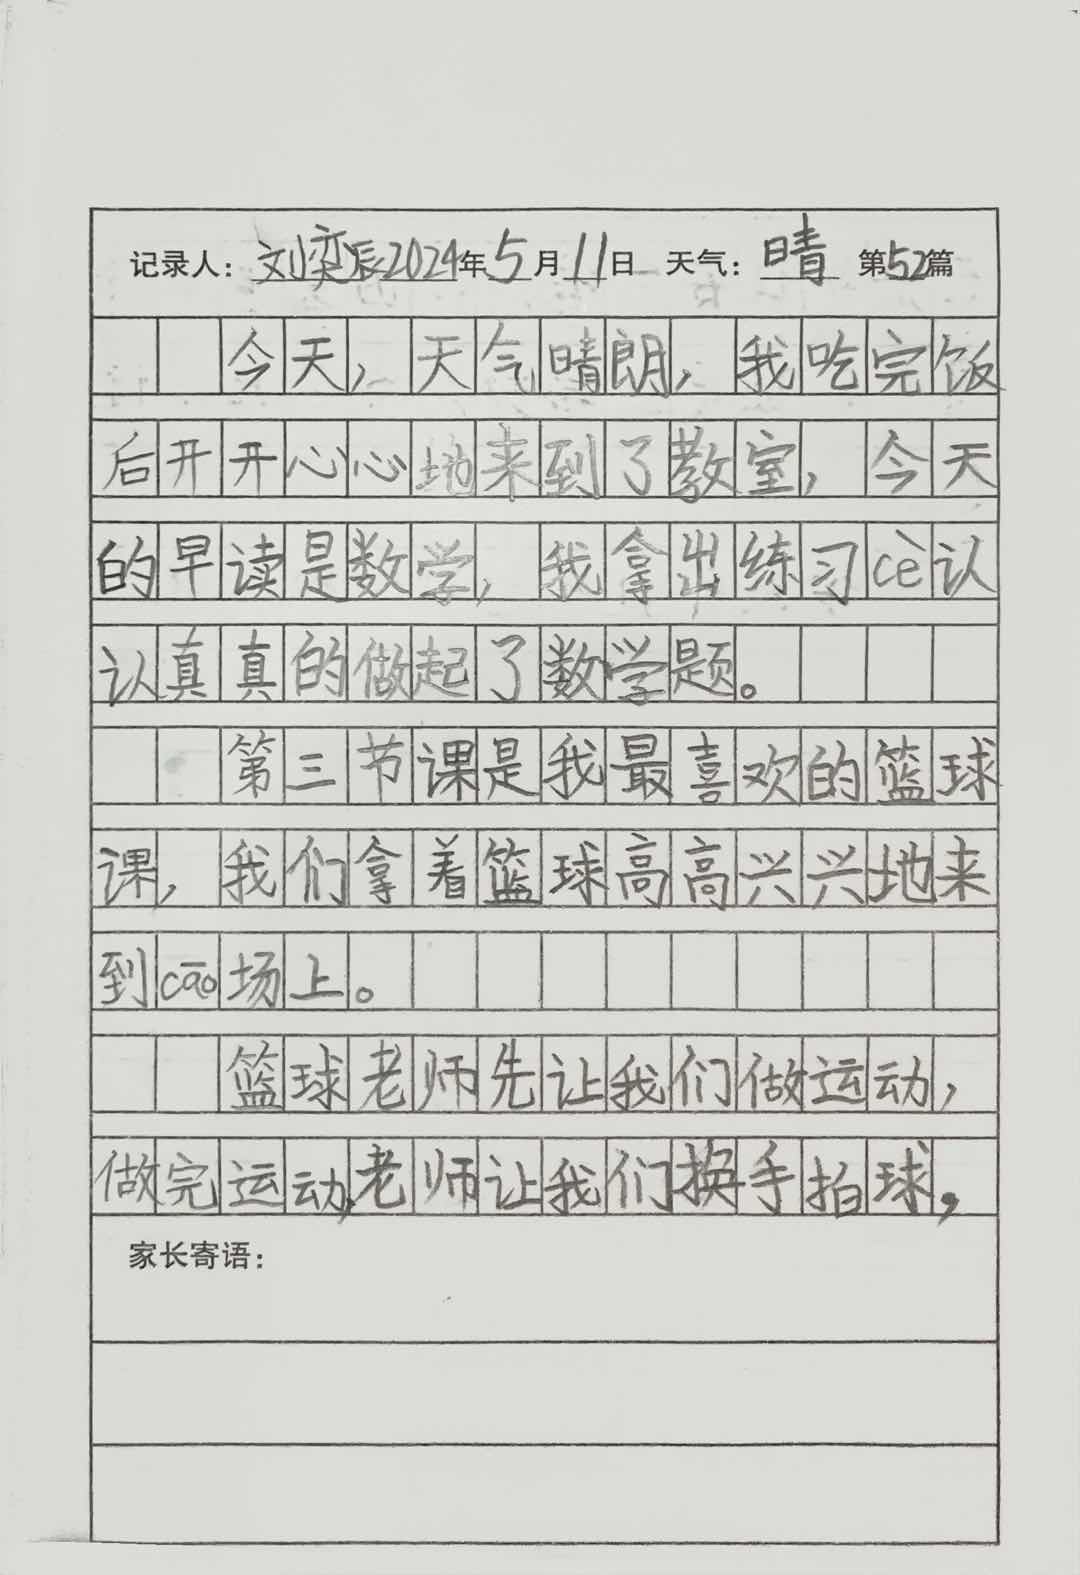 记录人：刘奕辰2024年5月11日 天气：晴 第52篇
今天，天气晴朗，我吃完饭
后开开心心地来到了教室，今天
的早读是数学，我拿出练习cè认
认真真的做起了数学题。
第三节课是我最喜欢的篮球
课，我们拿着篮球高高兴兴地来
到cāo场上。
篮球老师先让我们做运动，
做完运动，老师让我们换手拍球，
家长寄语：